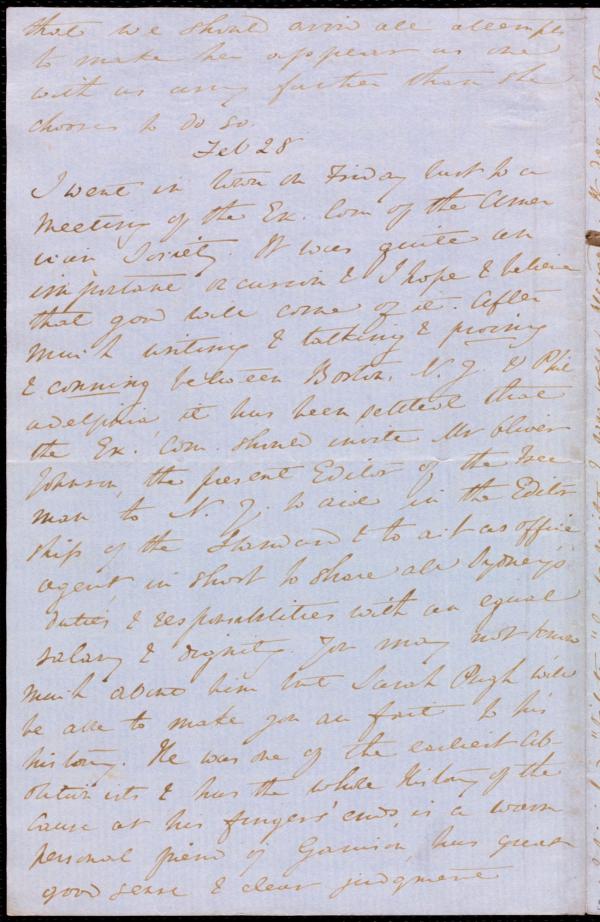 that we should avoid all attempts
to make her appear as one
with us any farther than she
chooses to do so.
Feb 28
I went in town on Friday last to a
meeting of the Ex. Com of the Amer
ican Society. It was quite an
important occasion & I hope & believe
that good will come of it. After
much writing & talking & proing
& conning between Boston, N. Y. & Phil
adelphia it has been settled that
the Ex. Com. should invite Mr Oliver
Johnson, the present Editor of the Free
man to N. Y. to aid in the Editor
ship of the Standard & to act as office
agent, in short to share all Sydney's
duties & responsibilities with an equal
salary & dignity. You may not know
much about him but Sarah Pugh will
be able to make you au fait to his
history. He was one of the earliest Ab-
olitionists & has the whole History of the
Cause at his fingers' ends is a warm
personal friend of Garrison, has great
good sense & clear judgment